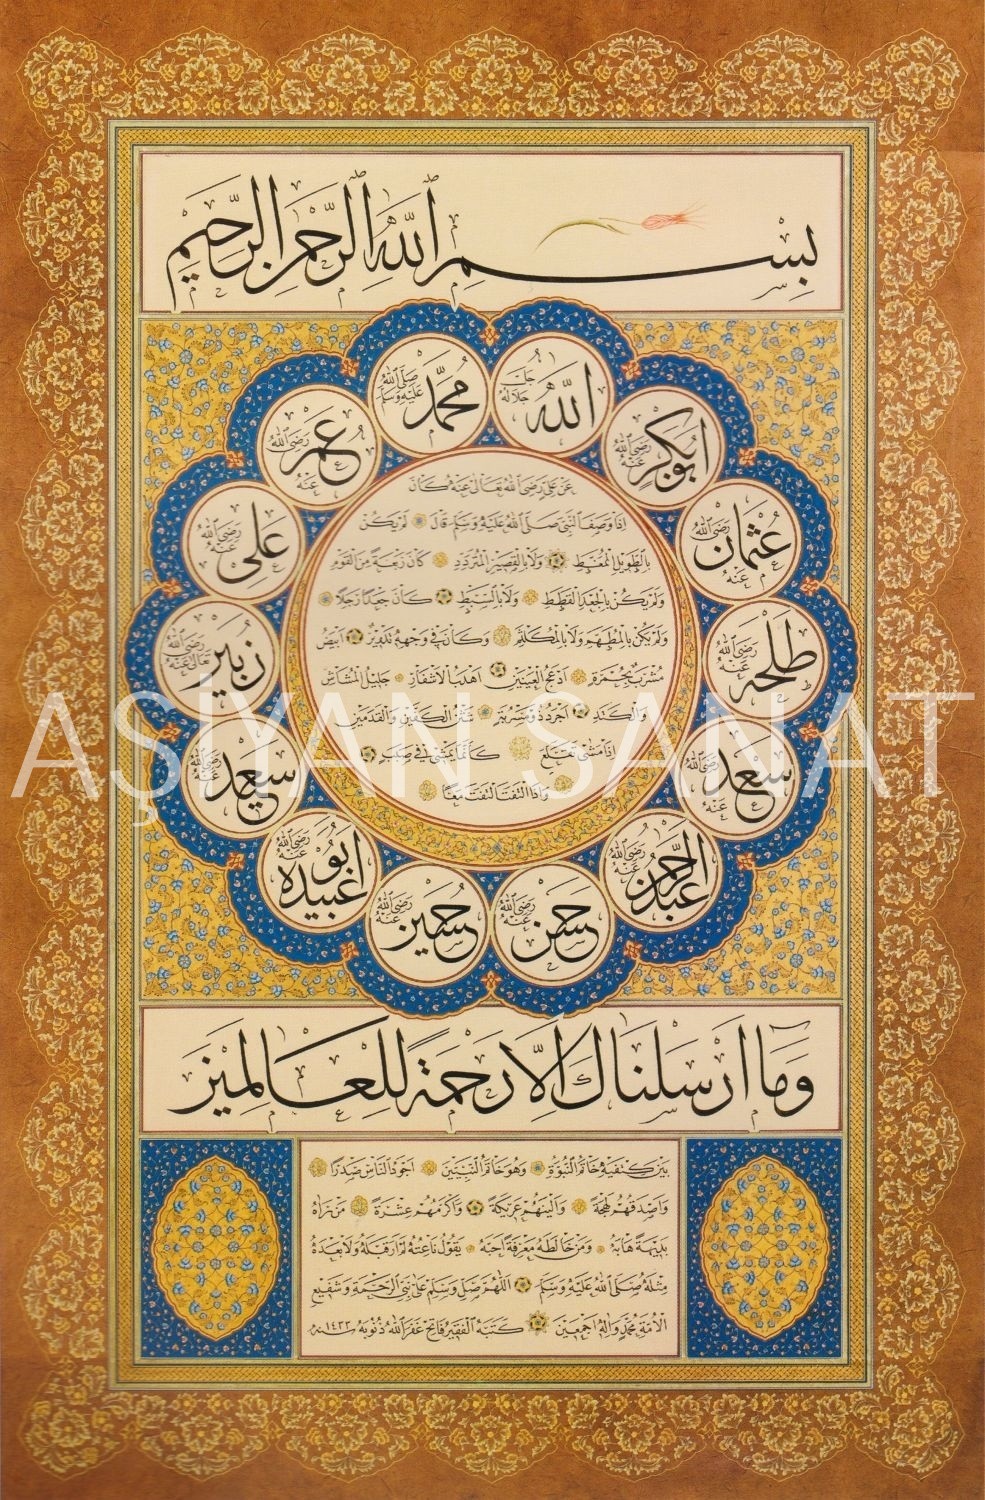 بسم الله الرحمن الرحيم
الله جل جلاله
محمد صلى الله عليه وسلم
ابوبكر رضى الله عنه
عمر رضى الله عنه
عثمان رضى الله عنه
على رضى الله عنه
طلحه رضى الله عنه
زبير رضى الله تعالى عنه
سعد رضى الله عنه
سعيد رضى الله عنه
عبدالرحمن رضى الله عنه
ابو عبيده رضى الله عنه
حسن رضى الله عنه
حسين رضى الله عنه
عن على رضى الله تعالى عنه كان
اذا وصف النبى صلى الله عليه وسلم قال لم يكن
بالطويل الممغط ولا بالقصير المتردد كان ربعة من القوم
ولم يكن بالجعد القطط ولا بالسبط كان جعدا رجلا
ولم يكن بالمطهم ولا بالمكلثم وكان فى وجهه تدوير ابيض
مشرب بحمرة ادعج العينين اهدب الاشفار جليل المشاش
والكتد اجرد ذو مسربة شثن الكفين والقدمين
اذا مشى تقلع كانما يمشى فى صبب
واذا التفت التفت معا
AŞİYAN SANAT
وما ارسلناك الا رحمة للعالمين
بين كتفيه خاتم النبوة وهو خاتم النبيين اجود الناس صدرا
واصدقهم لهجة والينهم عريكة واكرمهم عشرة من رآه
بديهة هابه ومن خالطه معرفة احبه يقول ناعته لم ار قبله ولا بعده
مثله صلى الله عليه وسلم اللهم صل وسلم على نبى الرحمة وشفيع
الامة محمد واله اجمعين كتبه الفقير فاتح غفر الله ذنوبه سنة ١٤٢٢